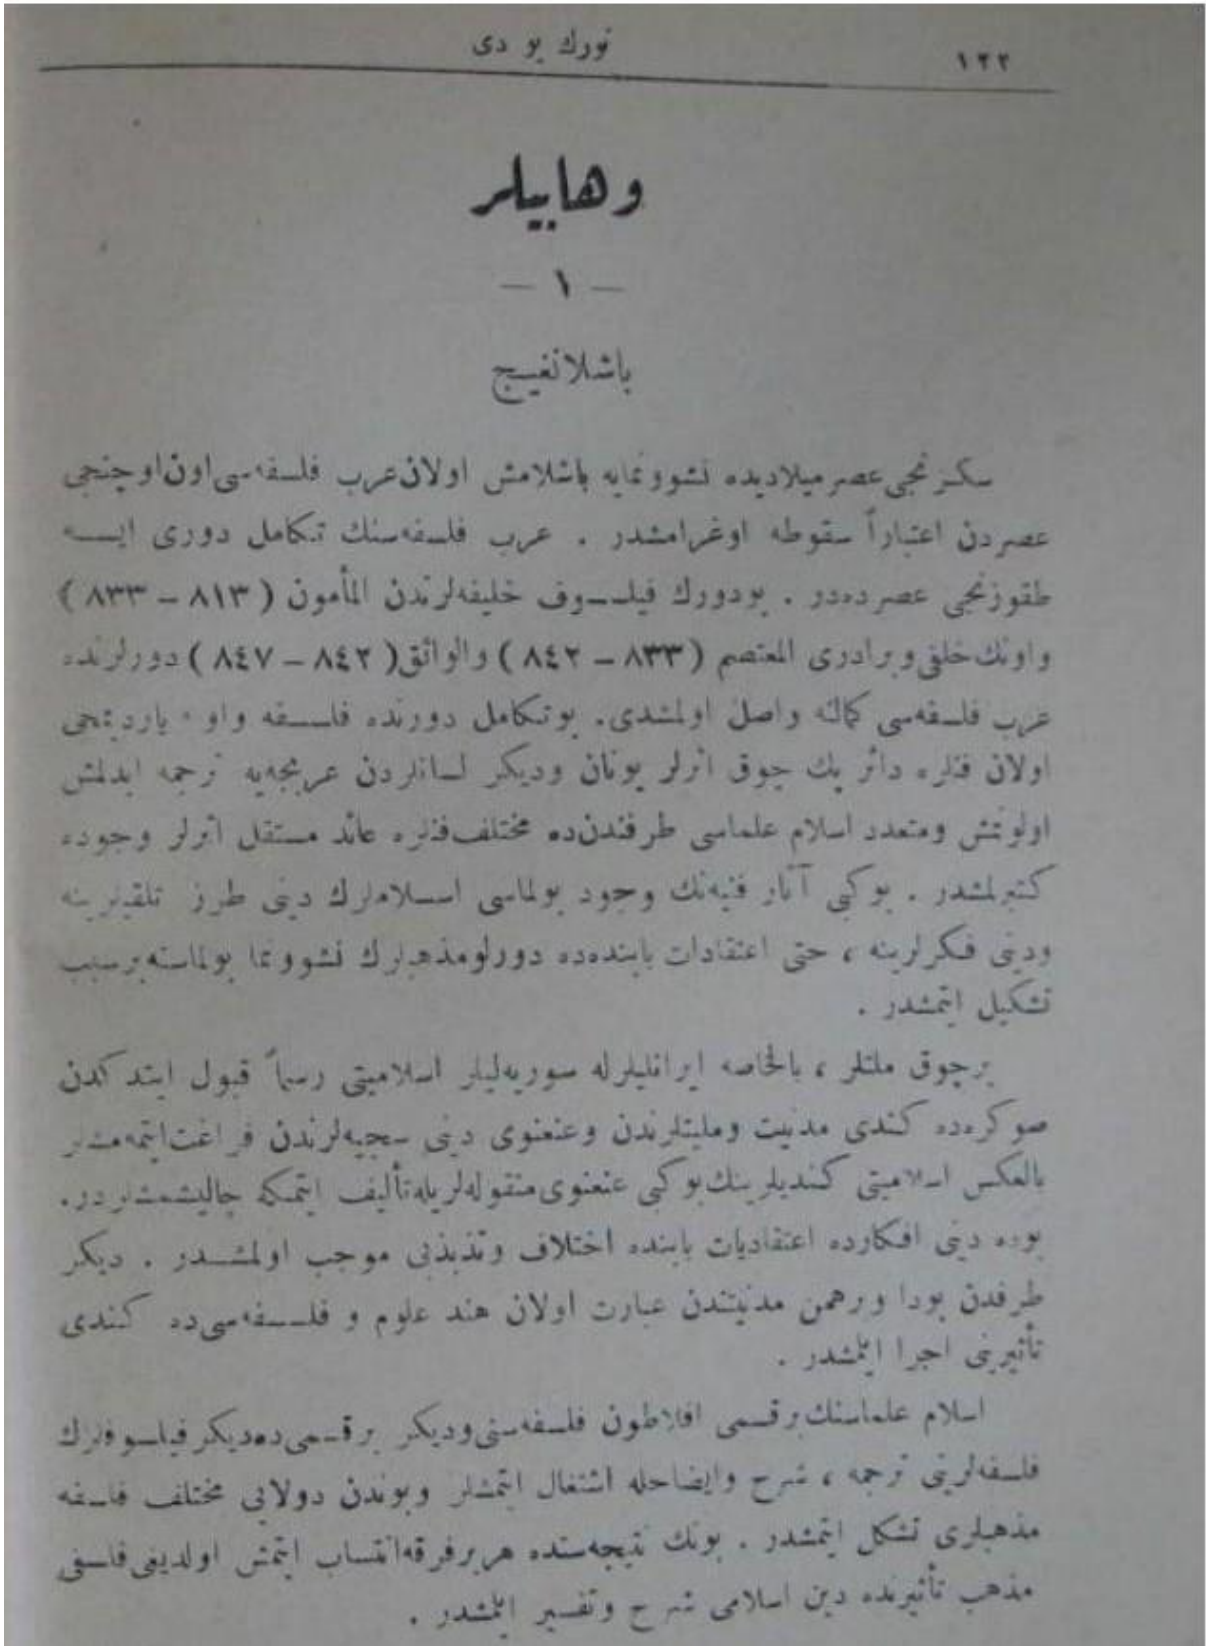 تورك يو دى ١٢٢
وهابيلر
— ١ —
باشلانغيج
سكزنجى عصر ميلاديده نشوونمايه باشلامش اولان عرب فلسفه‌سى اون اوچنجى
عصردن اعتباراً سقوطه اوغرامشدر . عرب فلسفه‌سنك تكامل دورى ايسه
طقوزنجى عصرده‌در . بودورك فيلسوف خليفه‌لرندن المأمون ( ٨١٣ – ٨٣٣ )
واونك خلفى وبرادرى المعتصم ( ٨٣٣ – ٨٤٢ ) والواثق ( ٨٤٢ – ٨٤٧ ) دورلرنده
عرب فلسفه‌سى كمالنه واصل اولمشدى. بوتكامل دورنده فلسفه واو ياردمجى
اولان فنلره دائر پك چوق اثرلر يونان وديكر لسانلردن عربجه‌يه ترجمه ايدلمش
اولونمش ومتعدد اسلام علماسى طرفندن‌ده مختلف فنلره عائد مستقل اثرلر وجوده
كتيرلمشدر . بوكبى آثار فنيه‌نك وجود بولماسى اسلاملرك دينى طرز تلقيلرينه
ودينى فكرلرينه ، حتى اعتقادات بابنده‌ده دورلومذهبلرك نشوونما بولماسنه برسبب
تشكيل ايتمشدر .
برچوق ملتلر ، بالخاصه ايرانليلرله سوريه‌ليلر اسلاميتى رسماً قبول ايتدكدن
صوكره‌ده كندى مدنيت ومليتلرندن وعنعنوى دينى سجيه‌لرندن فراغت ايتمه‌مشلر
بالعكس اسلاميتى كنديلرينك بوكبى عنعنوى منقوله‌لريله تأليف ايتمكه چاليشمشلردر.
بوده دينى افكارده اعتقاديات بابنده اختلاف وتذبذبى موجب اولمشدر . ديكر
طرفدن بودا وبرهمن مدنيتندن عبارت اولان هند علوم و فلسفه‌سى‌ده كندى
تأثيرينى اجرا ايلمشدر .
اسلام علماسنك برقسمى افلاطون فلسفه‌سنى وديكر برقسمى‌ده ديكر فيلسوفلرك
فلسفه‌لرينى ترجمه ، شرح وايضاحله اشتغال ايتمشلر وبوندن دولايى مختلف فلسفه
مذهبلرى تشكل ايتمشدر . بونك نتيجه‌سنده هربرفرقه انتساب ايتمش اولديغى فلسفى
مذهب تأثيرنده دين اسلامى شرح وتفسير ايلمشدر .